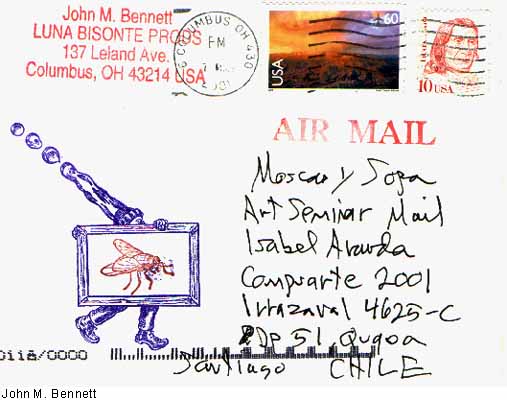 John M. Bennett
LUNA BISONTE PRODS
137 Leland Ave.
Columbus, OH 43214 USA
COLUMBUS OH 430
PM
2001
60
USA
10 USA
AIR MAIL
Moscas y Sopa
Art Seminar Mail
Isabel Aravda
Comprarte 2001
Irrazaval 4625-C
Dp 51 Qugoa
Santiago CHILE
0118/0000
John M. Bennett